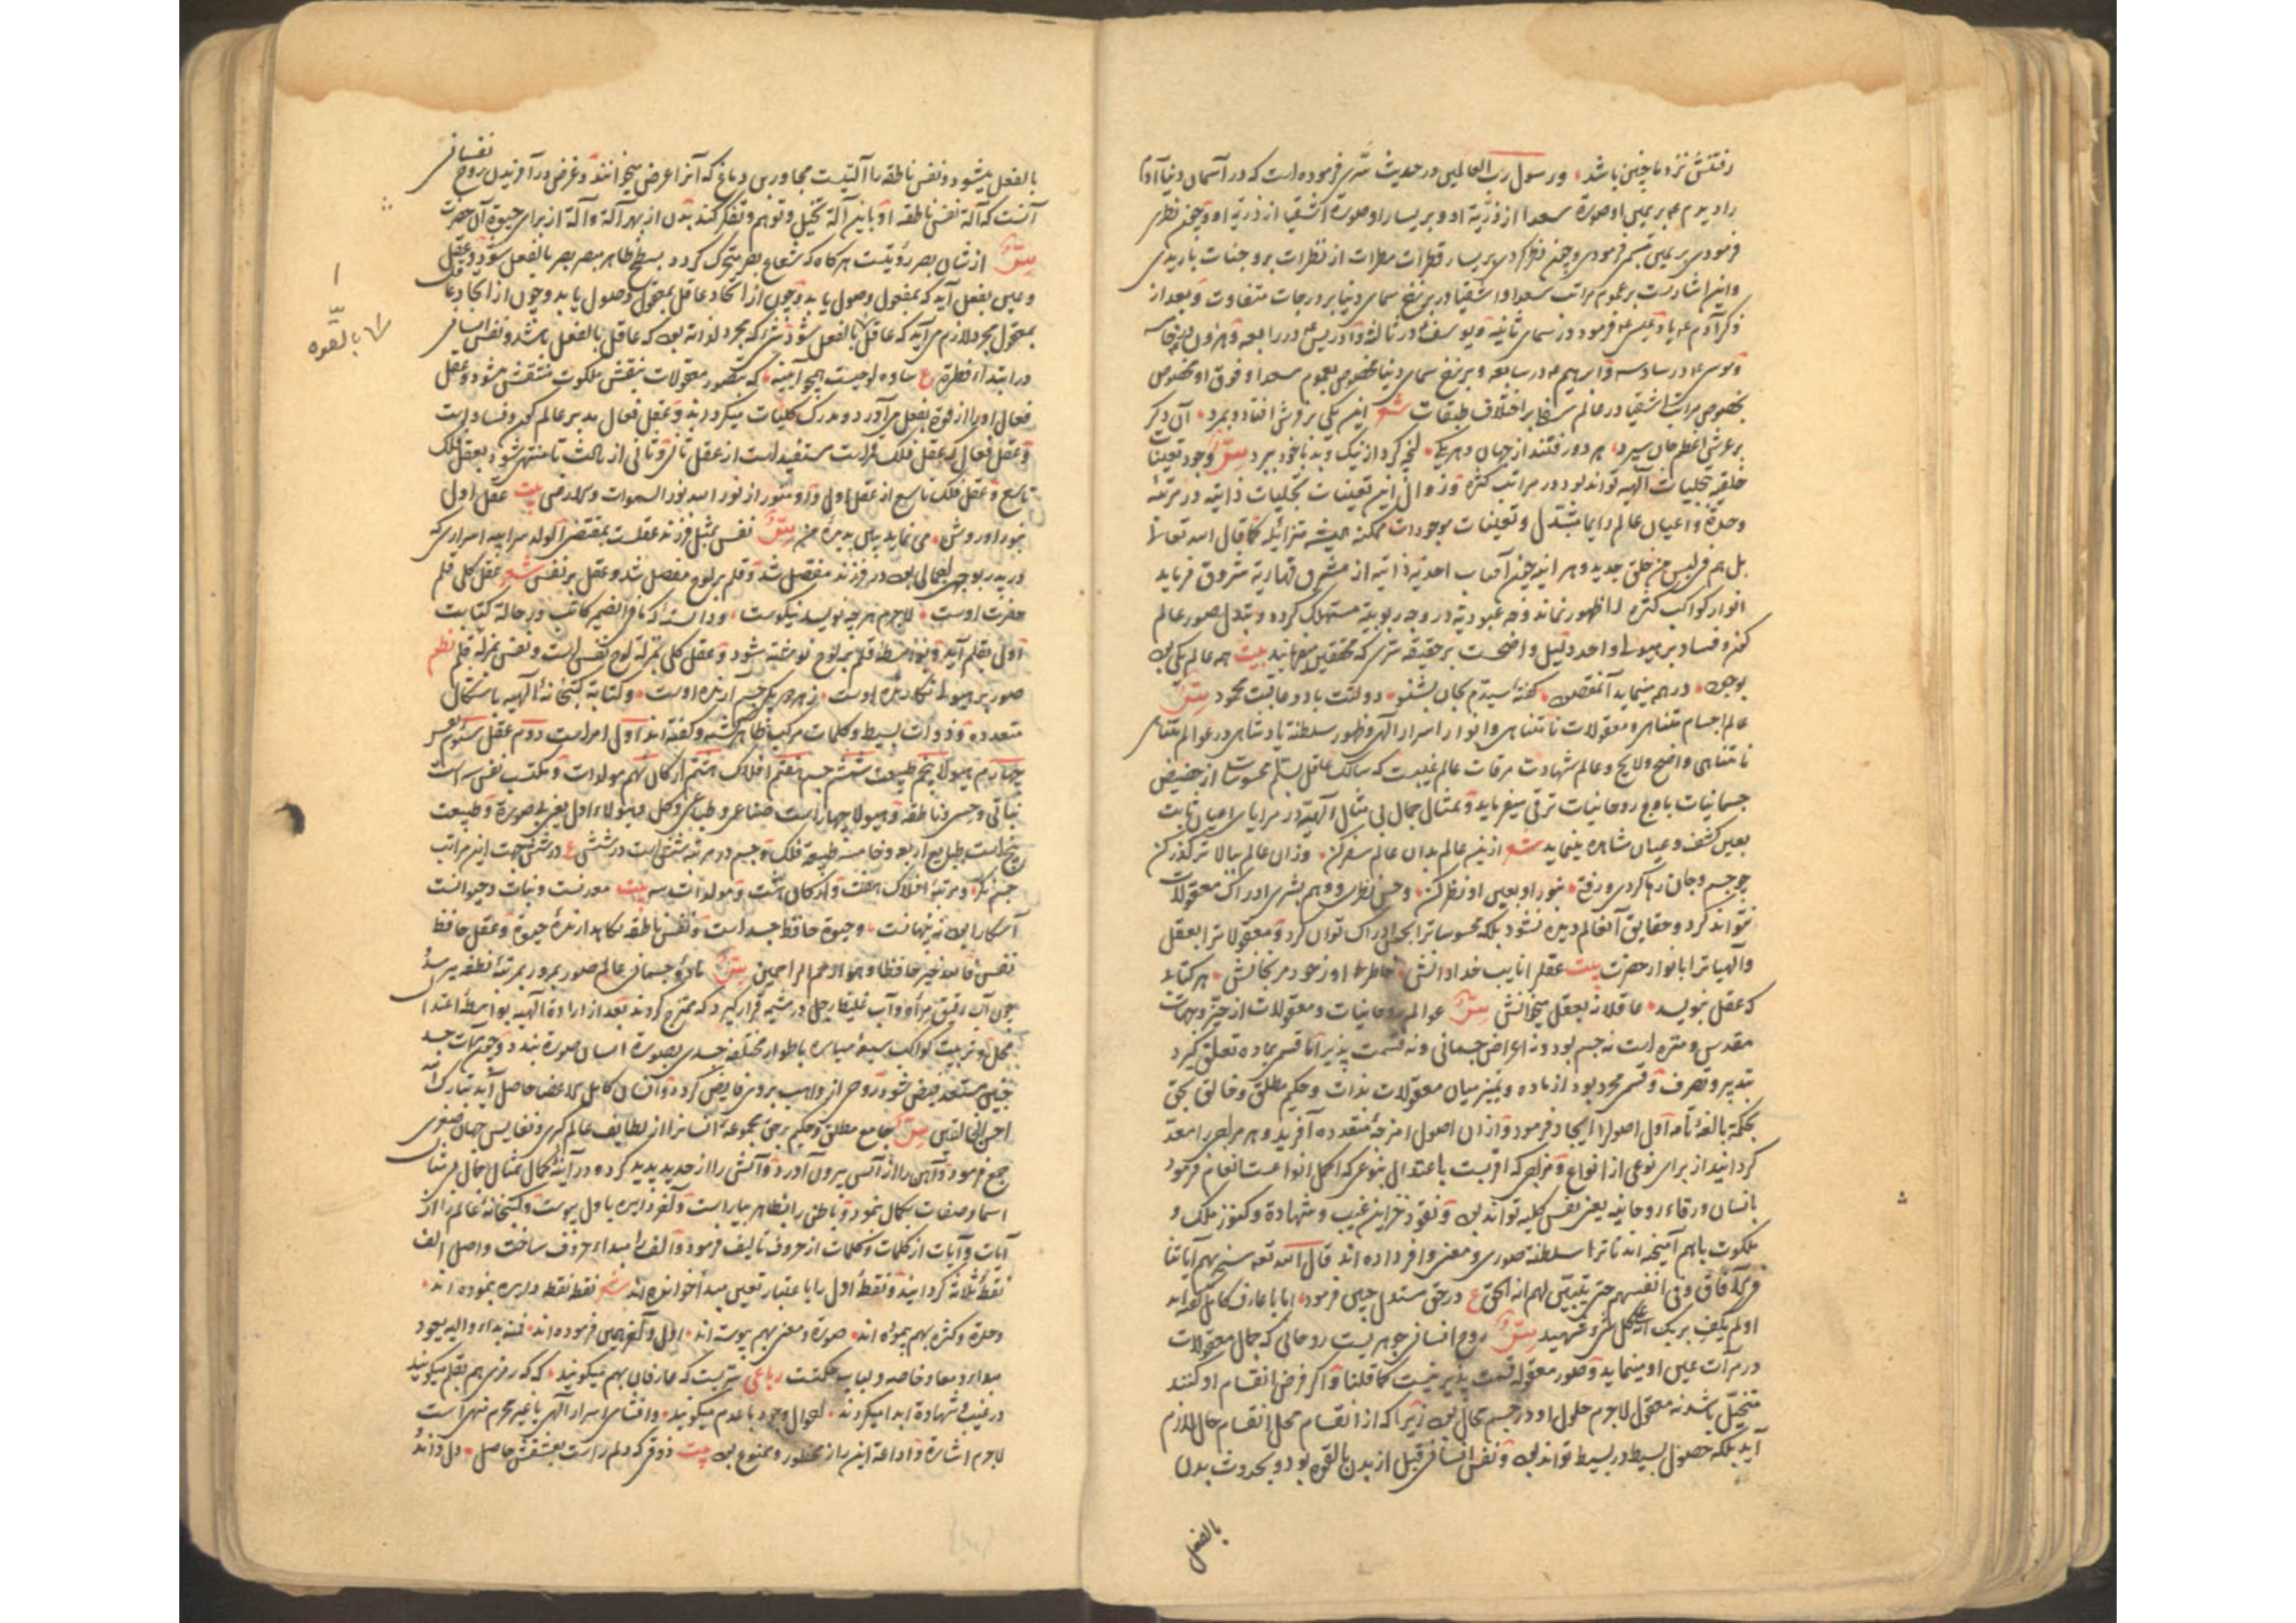 رفتنش نزد ما چنین باشد ورسول رب العالمین در حدیث فرموده است که در آسمان دنیا آدم
را دیدم بر یمین او صورة سعدا از ذریة او و بر یسار او صورة اشقیا از ذریة او وچون نظر
فرمودی بر یمین تبسم فرمودی وچون نظر کردی بر یسار قطرات از نظرات بر وجنات باریدی
واین اشارتست بر عموم مراتب سعدا واشقیا در برزخ سمای دنیا بر درجات متفاوت وبعد از
ذکر آدم فرمود در سمای ثانیه ویوسف در ثالثة وادریس در رابعه وهرون در خامسه
وموسی در سادسه وابراهیم در سابعه وبرزخ سمای دنیا مخصوص بعموم سعدا وفوق او مخصوص
بخصوص مراتب اشقیا در عالم سفلی بر اختلاف طبقات شعر این یکی افتاد وبمرد آن دکر
بر عرش اعظم جان سپرد هر دو رفتند از جهان هر یکی کرد از نیک وبد با خود ببرد سر وجود تعینات
خلقیه تجلیات الهیه تواند بود در مراتب کثرة وزوال این تعینات بتجلیات ذاتیه در مرتبه
وحدة واعیان عالم دایما متبدل وتعینات موجودات ممکنه همیشه متزایله کما قال الله تعالی
بل هم فی لبس من خلق جدید وهر آینه چون آفتاب احدیة ذاتیه از مشرق قهاریة شروق فرماید
انوار کواکب کثرة را ظهور نماند وجه عبودیة در وجه ربوبیة مستهلک کردد وتبدل صور عالم
کون وفساد بر هیولی واحد دلیل واضحست بر حقیقة سر که محققین بیت همه عالم یکی
بوجود در همه مینماید آن مقصود کفته سیدم بجان بشنو دولتت باد وعاقبت محمود سر
عالم اجسام متناهی ومعقولات نامتناهی وانوار اسرار الهی وظهور سلطنة پادشاهی در عوالم متناهی
نامتناهی واضح ولایح وعالم شهادت مرقات عالم غیبست که سالک عاقل بسلم محسوسات از حضیض
جسمانیات باوج روحانیات ترقی میفرماید وتمثال جمال بی مثال الهیه در مرایای اعیان ثابت
بعین کشف وعیان مشاهده مینماید شعر ازین عالم بدان عالم سفر کن وزان عالم ببالا تر کذر کن
چو جسم وجان رها کردی ورفتی بنور او بعین او نظر کن وحس نظری ووهم بشری ادراک معقولات
نتواند کرد وحقایق آن عالم دیده نشود بلکه محسوسات را بحس ادراک توان کرد ومعقولات را بعقل
والهیات را بانوار حضرت بیت عقل را نایب خدا دانش خاطر او ز خود مرنجانش هر کتاب
که عقل بنویسد عاقلانه بعقل میخوانش سر عوالم روحانیات ومعقولات از حیز وجهات
مقدس ومنزه است نه جسم بود ونه اعراض جسمانی ونه قسمت پذیر اما قسمی بماده تعلق کیرد
بتدبیر وتصرف وقسمی مجرد بود از ماده وتمییز میان معقولات بذات وحکیم مطلق وخالق بحق
بحکمة بالغه تامه اول اصول را ایجاد فرمود وازان اصول امزجه متعدده آفرید وهر مزاجی را معد
کردانید از برای نوعی از انواع ومزاجی که اقربست باعتدال بنوعی که اکمل انواعست انعام فرمود
بانسان ورقاء روحانیه یعنی نفس کلیه تواند بود ونقود خزاین غیب وشهادة وکنوز ملک و
ملکوت باهم آمیخته اند تا ترا سلطنة صوری ومعنوی وافر داده اند قال الله تعه سنریهم آیاتنا
فی الآفاق وفی انفسهم حتی یتبین لهم انه الحق ع در حق مستدل چنین فرمود اما با عارف کامل کفته اند
اولم یکف بربک انه علی کل شیء شهید سر روح انسانی جوهریست روحانی که جمال معقولات
در مرآت عین او مینماید وصور معقوله قسمت پذیر نیست کما قلنا واکر فرض انقسام او کنند
متخیل باشد نه معقول لاجرم حلول او در جسم محال بود زیرا که از انقسام محل انقسام حال لازم
آید بلکه حصول بسیط در بسیط تواند بود ونفس انسانی قبل از بدن بالقوه بود وبحدوث بدن
بالفعل
بالفعل میشود ونفس ناطقه را آلتیست مجاور این دماغ که آنرا عرض میخوانند وغرض در آفریدن روح نفسانی
آنست که آلة نفس ناطقه او باین آلة تخیل وتوهم وتفکر کند بدن از بهر آلة وآلة از برای حیوة آن حضرت
سر از شان بصر رؤیتست هر کاه که شعاع بصر متحرک کردد بسطح ظاهر مبصر بصر بالفعل شود وعقل
وعین بفعل آید که بمفعول وصول یابد وچون از اتحاد عاقل بمعقول وصول یابد وچون از اتحاد عاقل
بمعقول مجرد لازم می آید که عاقل بالفعل شود نه آنکه مجرد لذاته بود که عاقل بالفعل باشد ونفس انسانی
بالقوه
در ابتداء فطرة ع ساده لوحیست همچو آیینه که بتصور معقولات بنقش ملکوت منتقش میشود وعقل
فعال او را از قوة بفعل می آورد ومدرک کلیات میکرداند وعقل فعال مدبر عالم کون وفساد است
وعقل فعال که عقل فلک قمر است مستفید است از عقل ثانی وثانی از ثالث تا منتهی شود بعقل فلک
تاسع وعقل فلک تاسع از عقل اول واو منور از نور الله نور السموات والارض بیت عقل اول
بنور او روشن می نماید سر نفس بمثل فرزند عقلست بمقتضی الولد سر ابیه اسراری که
در پدر بوجه اجمالی بود در فرزند مفصل شد وقلم بر لوح مفصل شد وعقل بر نفس شعر عقل کلی قلم
حضرت اوست لاجرم هر چه نویسد نیکوست ودانسته که ما فی الضمیر کاتب در حالة کتابت
اول بقلم آید وبواسطه قلم بر لوح نوشته شود وعقل کلی بمنزله لوح نفس است ونفس بمنزله قلم نظم
صور بر هیولی نکارنده اوست زهر هر یکی جسم آرنده اوست وکتابة کتبخانه الهیه باشکال
متعدده وذوات بسیط وکلمات مرکب ظاهر کشته وکفته اند اول امر است دوم عقل سیوم نفس
چهارم هیولا پنجم طبیعة ششم جسم هفتم افلاک هشتم ارکان نهم مولدات ومکتب نفس سه است
نباتی وحسی وناطقه وهیولا چهار است صناعی وطباعی وکل وهیولاء اول یعنی بی صورة وطبیعت
پنج است طبایع اربعه وخامسه طبیعة فلک وجسم در مرتبه شش است در شش ع در شش جهت این مراتب
جسم نکر ومرتبه افلاک هفت وارکان هشت ومولدات سه بیت معدنست ونبات وحیوانست
آشکار این نه پنهانست وحیوة حافظ جسد است ونفس ناطقه نکاهدارنده حیوة وعقل حافظ
نفس فالله خیر حافظا وهو ارحم الراحمین سر ماده جسمانی عالم صور بمرور بمرتبه نطفه میرسد
چون آب رقیق مرأة وآب غلیظ رجل در مشیمه قرار کیرد که ممتزج کردند بعد از ارادة الهیه بواسطه اعتدال
محل وتربیت کواکب سبعه سیاره باطوار مختلفه جسدی بصورة انسان صورة بندد وچون مرآت جسد
جنین مستعد فیض شود روحی از واهب بر وی فایض کردد وانسان کامل الاعضا حاصل آید تبارک الله
احسن الخالقین سر جامع مطلق وحکیم بر حق مجموعه انسانرا از لطایف عالم کبری ونفایس جهان صغری
جمع فرمود وآهن را از آتش بیرون آورد وآتش را از حدید پدید کرد ودر آینه کمال تمثال جمال بی مثال
اسما وصفات بکمال نمود وباطن را بظاهر بیاراست وآخر دایره باول پیوست وکتبخانه عالم را از
آیات وآیات از کلمات وکلمات از حروف تالیف فرمود والف را مبداء حروف ساخت واصل الف
نقطه ثلاثه کردانید ونقطه اول را باعتبار تعین مبدأ خوانده اند شعر نقطه نقطه دایره بنموده اند
وحدة وکثرة بهم بنموده اند صورة ومعنی بهم پیوسته اند اول وآخر همین فرموده اند فمنه بداء والیه یعود
مبداء ومعاد خاصه ولباب حکمتست رباعی سریست که عارفان بهم میکویند که که رمزی هم بقلم میکویند
در غیب وشهادة ابدا میکردند احوال وجود با عدم میکویند وافشای اسرار الهی با غیر محرم منهی است
لاجرم اشارة واداعة این راز محظور وممنوع بود بیت ذوقی که دلم راست بعشقش حاصل دل داند